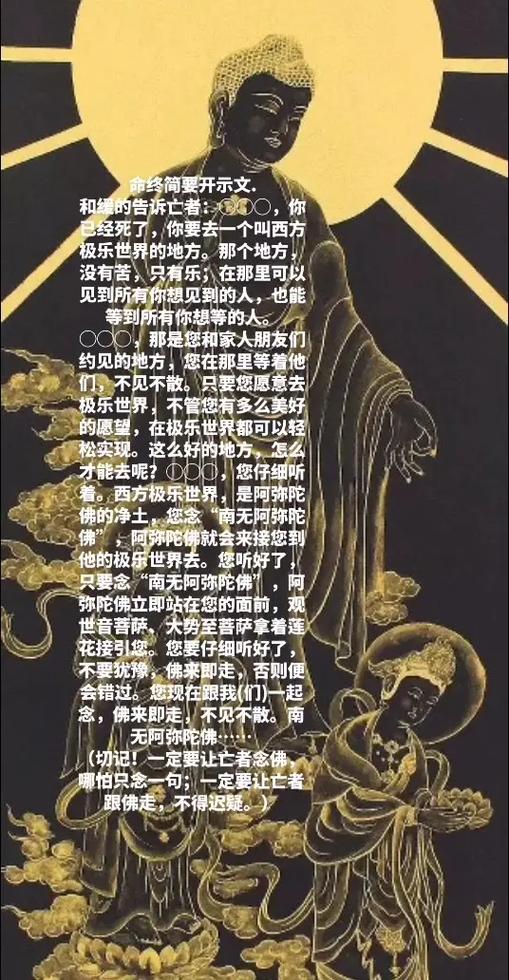 命终简要开示文.
和缓的告诉亡者：○○○，你
已经死了，你要去一个叫西方
极乐世界的地方。那个地方，
没有苦，只有乐；在那里可以
见到所有你想见到的人，也能
等到所有你想等的人。
○○○，那是您和家人朋友们
约见的地方，您在那里等着他
们，不见不散。只要您愿意去
极乐世界，不管您有多么美好
的愿望，在极乐世界都可以轻
松实现。这么好的地方，怎么
才能去呢？○○○，您仔细听
着。西方极乐世界，是阿弥陀
佛的净土，您念“南无阿弥陀
佛”，阿弥陀佛就会来接您到
他的极乐世界去。您听好了，
只要念“南无阿弥陀佛”，阿
弥陀佛立即站在您的面前，观
世音菩萨、大势至菩萨拿着莲
花接引您。您要仔细听好了，
不要犹豫，佛来即走，否则便
会错过。您现在跟我(们)一起
念，佛来即走，不见不散。南
无阿弥陀佛……
（切记！一定要让亡者念佛，
哪怕只念一句；一定要让亡者
跟佛走，不得迟疑。）